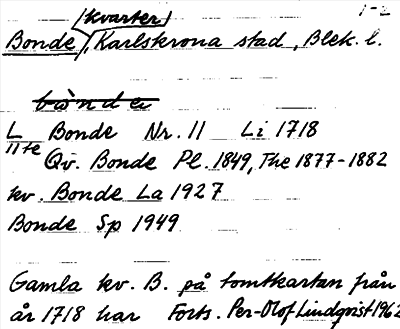 /kvarter/ 1-2
Bonde, Karlskrona stad, Blek. l.
bò'nde
L Bonde Nr. 11 Li 1718
11te Qv. Bonde Pl. 1849, The 1877-1882
kv. Bonde La 1927
Bonde Sp 1949
Gamla kv. B. på tomtkartan från
år 1718 har Forts. Per-Olof Lindqvist 1962